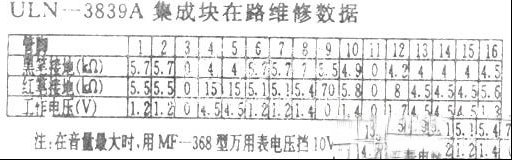 ULN—3839A 集成块在路维修数据
管脚 1 2 3 4 5 6 7 8 9 10 11 12 13 14 15 16
黑笔接地(kΩ) 5.7 5.7 0 4 4 5.7 5.7 7 5.5 4.9 0 4.2 4 4 4 4.5
红笔接地(kΩ) 5.5 5.5 0 15 15 5.1 5.1 5.4 70 5.8 0 8 4.5 4.5 5.5 5.6
工作电压(V) 1.2 1.2 0 4.5 4.5 1.2 1.2 1.4 0 1.4 0 1.7 4.5 4.5
注:在音量最大时,用MF—368型万用表电压挡10V
5.1 5.4
1.2 1.4